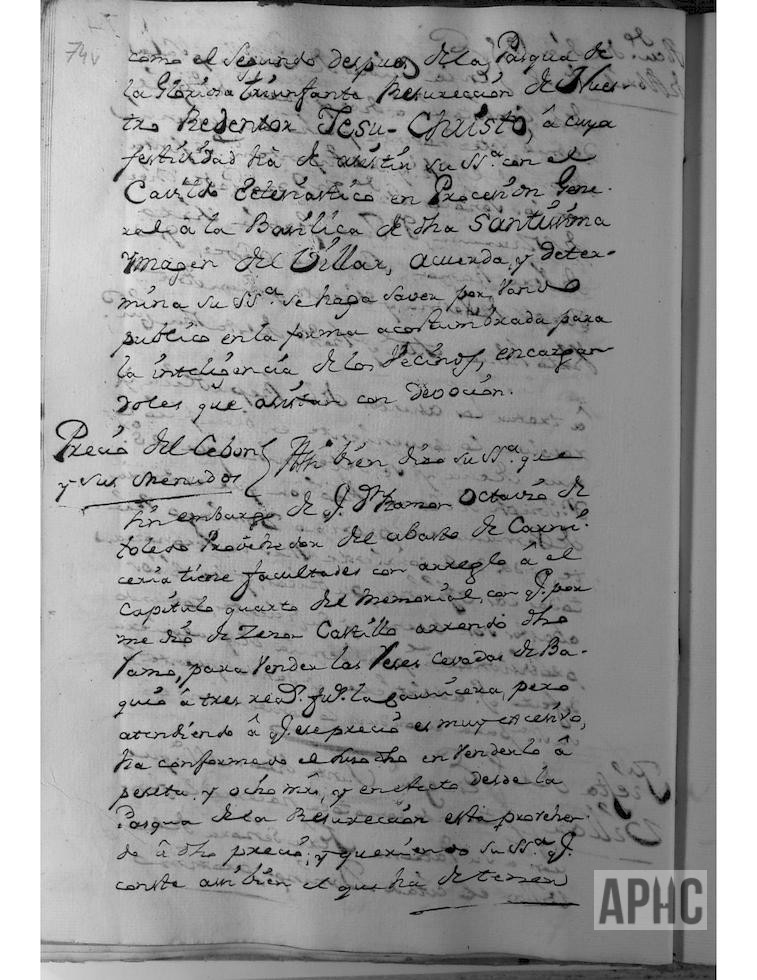 74v
como el Segundo despues de la Pasqua de
la Gloriosa triunfante Resurección de Nues-
tro Redentor Jesu-Christo, â cuya
festividad há de asistir su Ss.ª con el
Cavildo Eclesiastico en Procesion Gene-
ral â la Basilica de dha Santissima
Ymagen del Villar, acuerda, y deter-
mina su Ss.ª se haga saver por Vando
publico en la forma acostumbrada para
la inteligencia de los Vecinos, encargan
doles que asistan con devoción.
Precio del Cebon
y sus menudos
Assi bien dixo su Ss.ª que
sin embargo de q. Dn Ramon Octavio de
toledo Provehedor del abasto de Carni-
ceria tiene facultades con arreglo â el
Capitulo quarto del Memorial, con q. por
medio de Zenon Castillo arrendó dho
Ramo, para Vender las Reses Cevadas de Ba-
quio â tres rea.s fu.s la carnicera, pero
atendiendo â q. ese precio es muy excesivo,
ha conformado el susodho en Venderlo â
peseta y ocho mrs, y en efecto desde la
Pasqua de la Resurección está provehen-
do â dho precio; y queriendo su Ss.ª q.
conste assi bien el que ha de tener
APHC